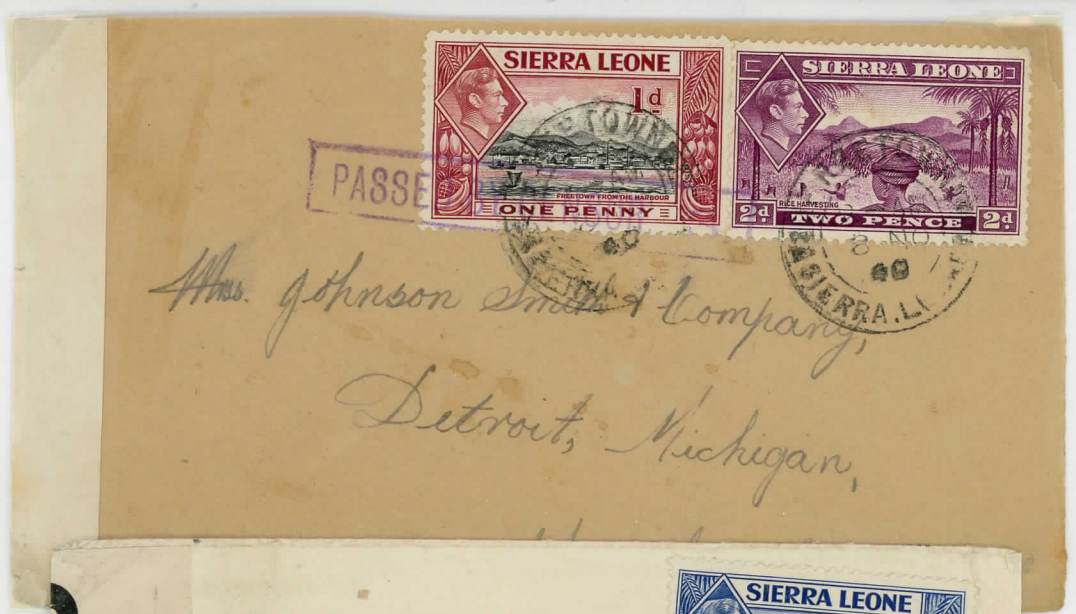 SIERRA LEONE
1d
FREETOWN FROM THE HARBOUR
ONE PENNY
SIERRA LEONE
RICE HARVESTING
2d. TWO PENCE 2d.
PASSE
FREETOWN
40
8 NO
40
SIERRA.L
Johnson Smith & Company,
Detroit, Michigan,
SIERRA LEONE